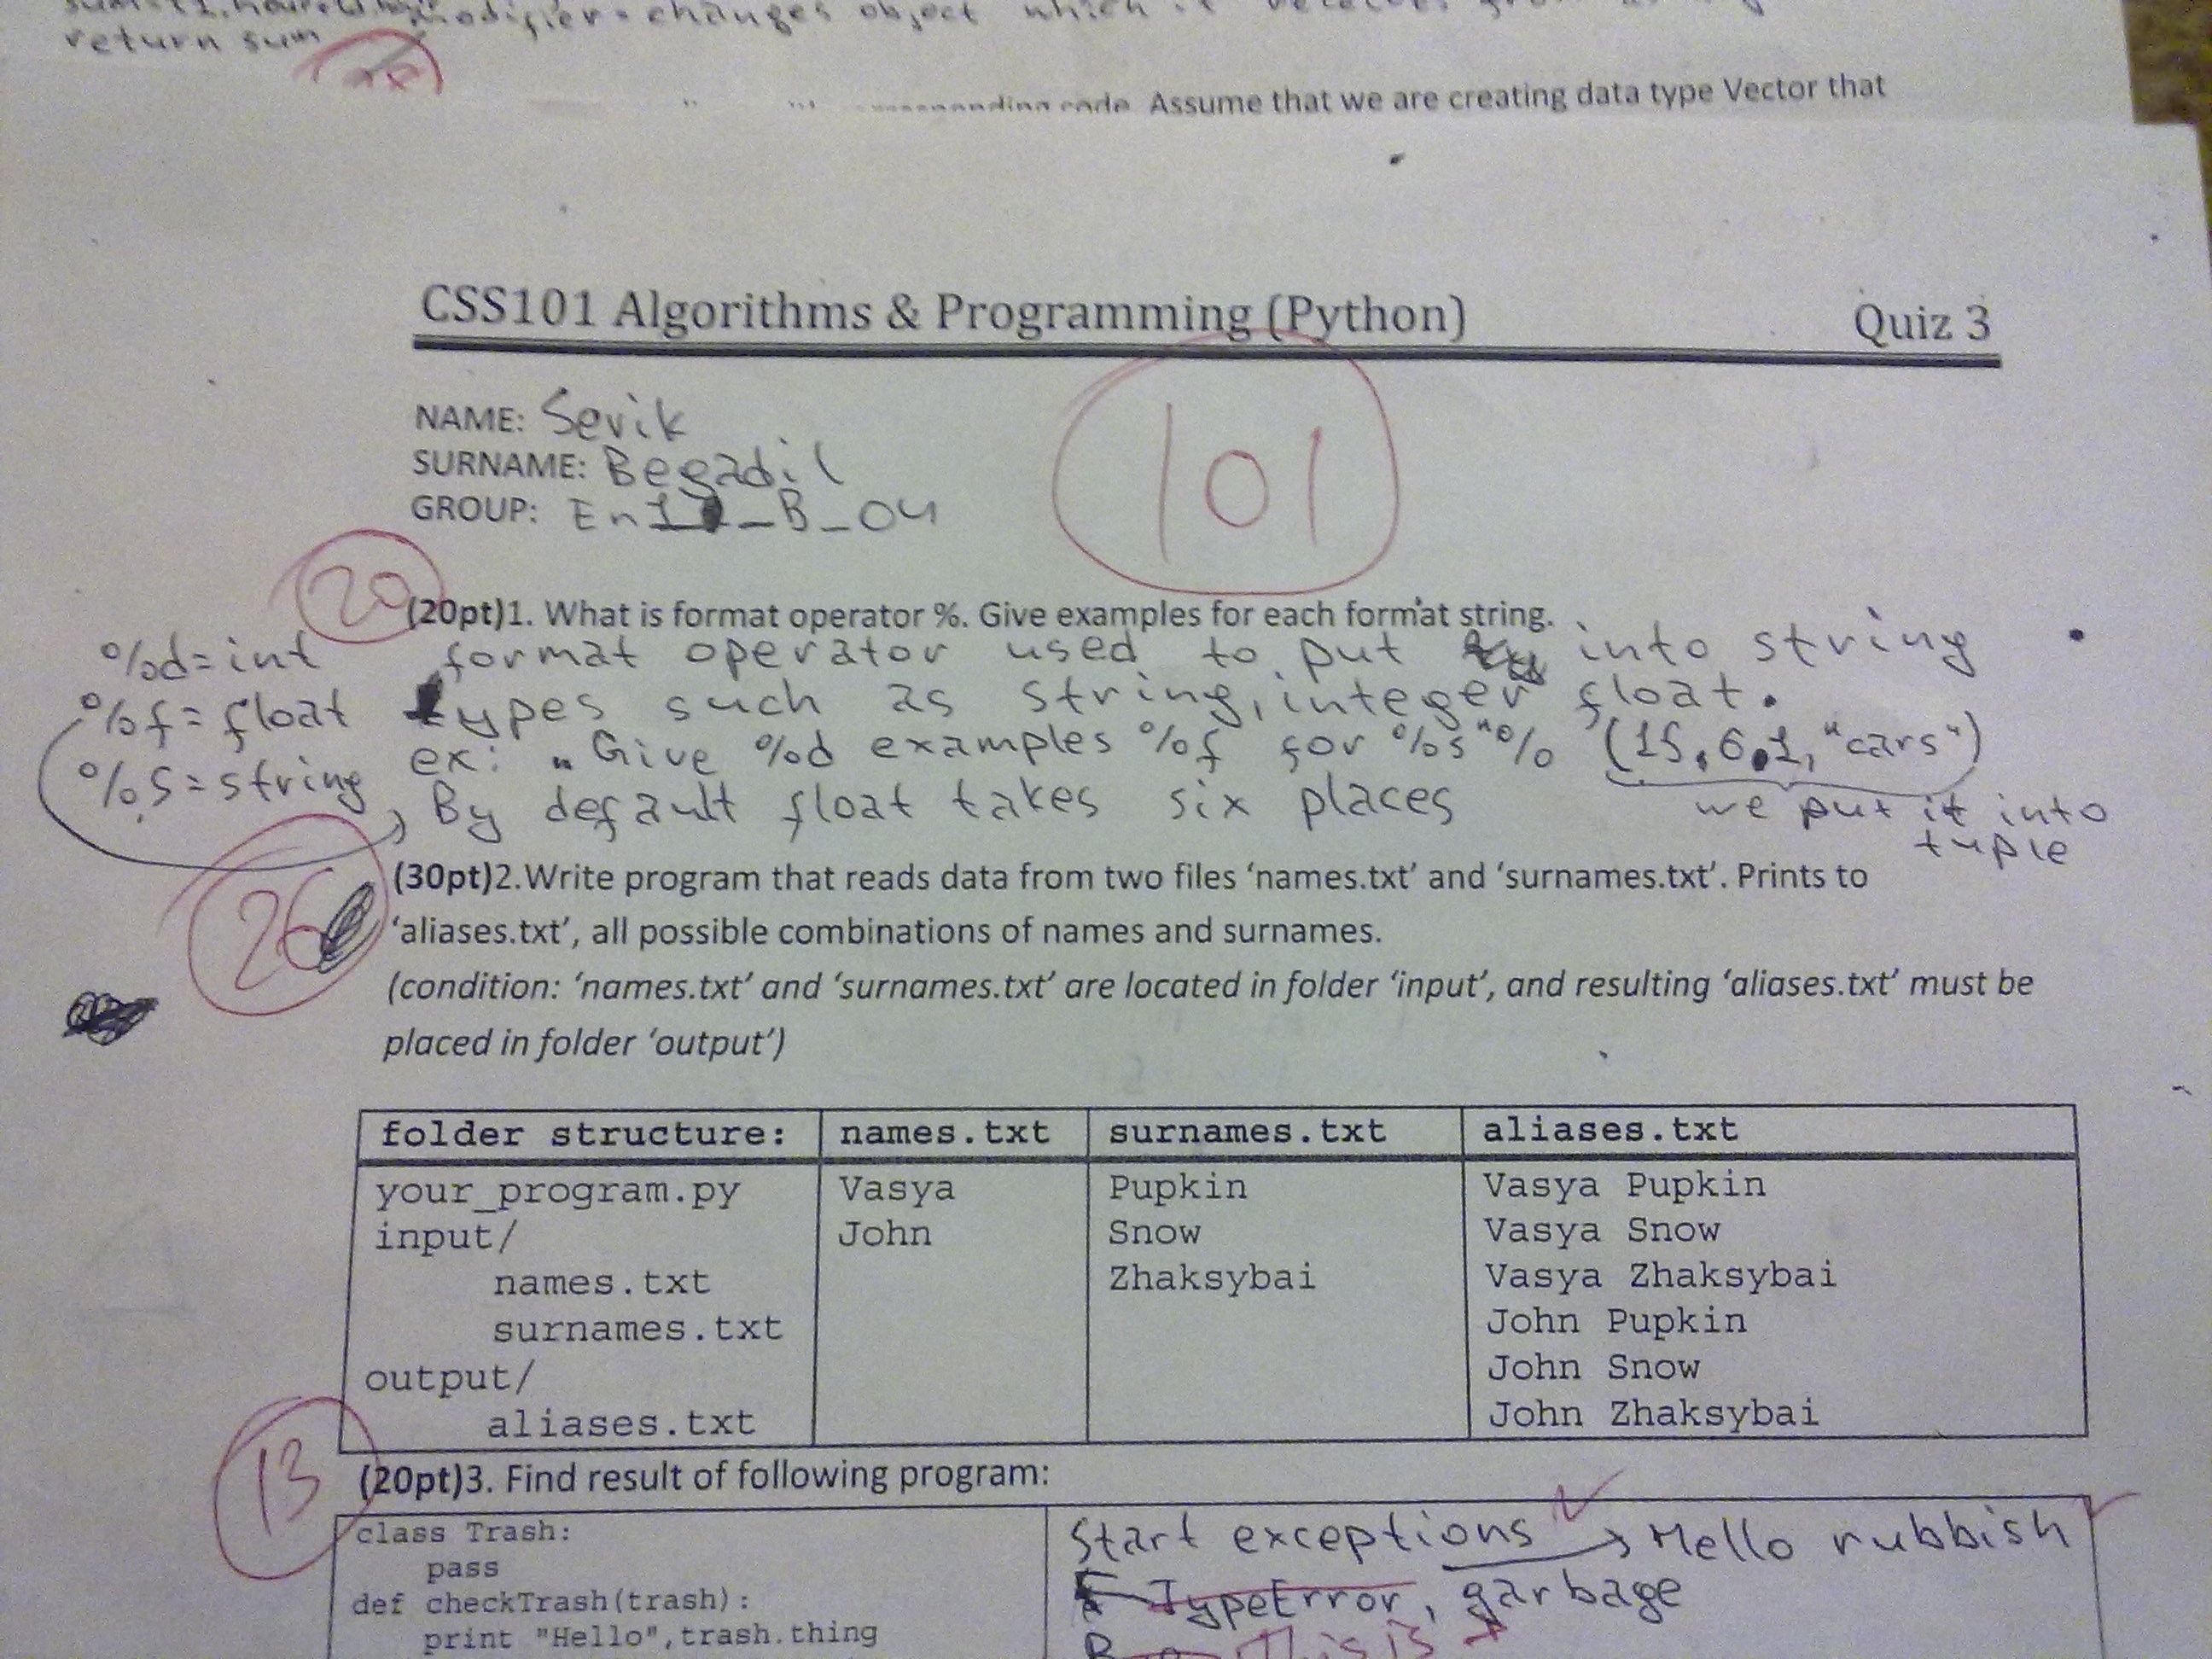 modifier - changes object which it
return sum
corresponding code. Assume that we are creating data type Vector that
CSS101 Algorithms & Programming (Python) Quiz 3
NAME: Serik
SURNAME: Begadil
GROUP: En1 _B_04
101
20
(20pt)1. What is format operator %. Give examples for each format string.
%d=int
%f=float
%s=string
format operator used to put into string
types such as string, integer float.
ex: "Give %d examples %f for %s"% (15,6.1,"cars")
By default float takes six places
we put it into
tuple
26
(30pt)2.Write program that reads data from two files ‘names.txt’ and ‘surnames.txt’. Prints to
‘aliases.txt’, all possible combinations of names and surnames.
(condition: ‘names.txt’ and ‘surnames.txt’ are located in folder ‘input’, and resulting ‘aliases.txt’ must be
placed in folder ‘output’)
folder structure: names.txt surnames.txt aliases.txt
your_program.py Vasya Pupkin Vasya Pupkin
input/ John Snow Vasya Snow
names.txt Zhaksybai Vasya Zhaksybai
surnames.txt John Pupkin
output/ John Snow
aliases.txt John Zhaksybai
13
(20pt)3. Find result of following program:
class Trash:
pass
def checkTrash(trash):
print "Hello",trash.thing
Start exceptions → Hello rubbish
TypeError, garbage
This is